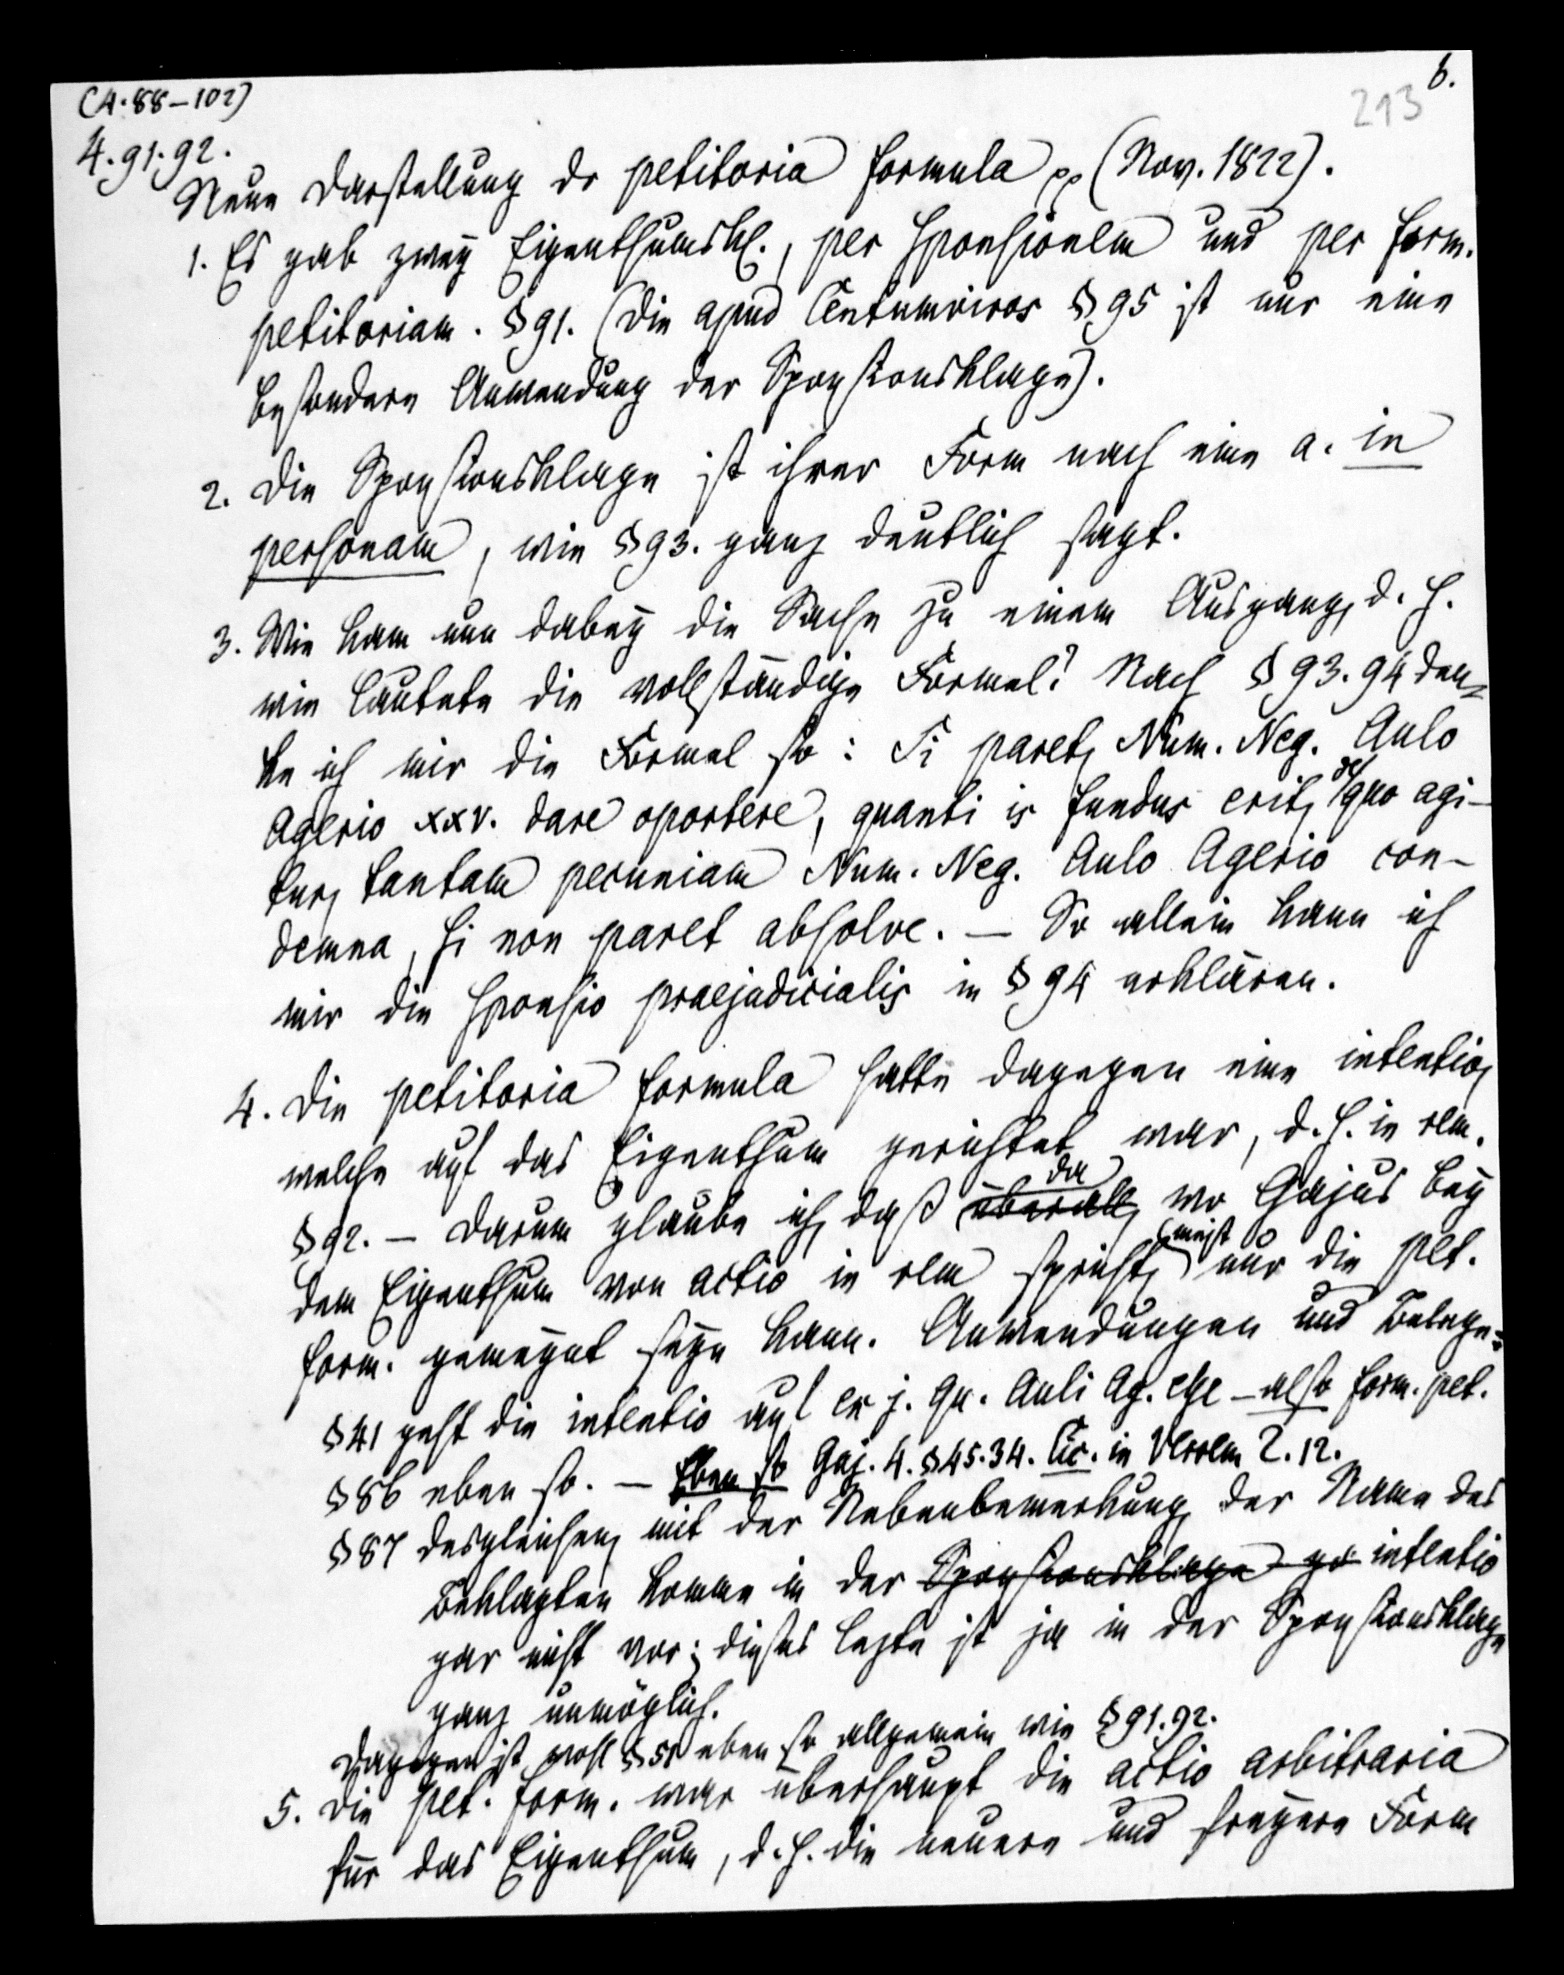 (4.88–102)
213
6.
4.91.92.
Neue Darstellung der petitoria formula pp (Nov. 1822).
1. Es gab zwey Eigenthumskl., per sponsionem und per form.
petitoriam. §91. (Die apud Centumviros §95 ist nur eine
besondere Anwendung der Sponsionsklage).
2. Die Sponsionsklage ist ihrer Form nach eine a. in
personam, wie §93. ganz deutlich sagt.
3. Wie kam nun dabey die Sache zu einem Ausgang, d. h.
wie lautete die vollständige Formel? Nach §93.94 den=
ke ich mir die Formel so: Si paret, Num. Neg. Aulo
Agerio xxv. dare oportere, quanti is fundus erit, de quo agi–
tur, tantam pecuniam Num. Neg. Aulo Agerio con–
demna, si non paret absolve. — So allein kann ich
mir die sponsio praejudicialis in §94 erklären.
4. Die petitoria formula hatte dagegen eine intentio,
welche auf das Eigenthum gerichtet war, d. h. in rem.
§92. — Darum glaube ich, daß überall, da wo Gajus bey
dem Eigenthum von actio in rem spricht, meist nur die pet.
form. gemeynt seyn kann. Anwendungen und Belege:
§41 geht die intentio auf ex j. Qu. Auli Ag. esse – also form. pet.
§86 eben so. — Eben so Gaj. 4. §45.34. Cic. in Verrem 2.12.
§87 desgleichen, mit der Nebenbemerkung, der Name des
Beklagten komme in der Sponsionsklage ga intentio
gar nicht vor; dieses lezte ist ja in der Sponsionsklage
ganz unmöglich.
Dagegen ist wohl §51 eben so allgemein wie §91.92.
5. Die pet. form. war überhaupt die actio arbitraria
für das Eigenthum, d. h. die neuere und freyere Form